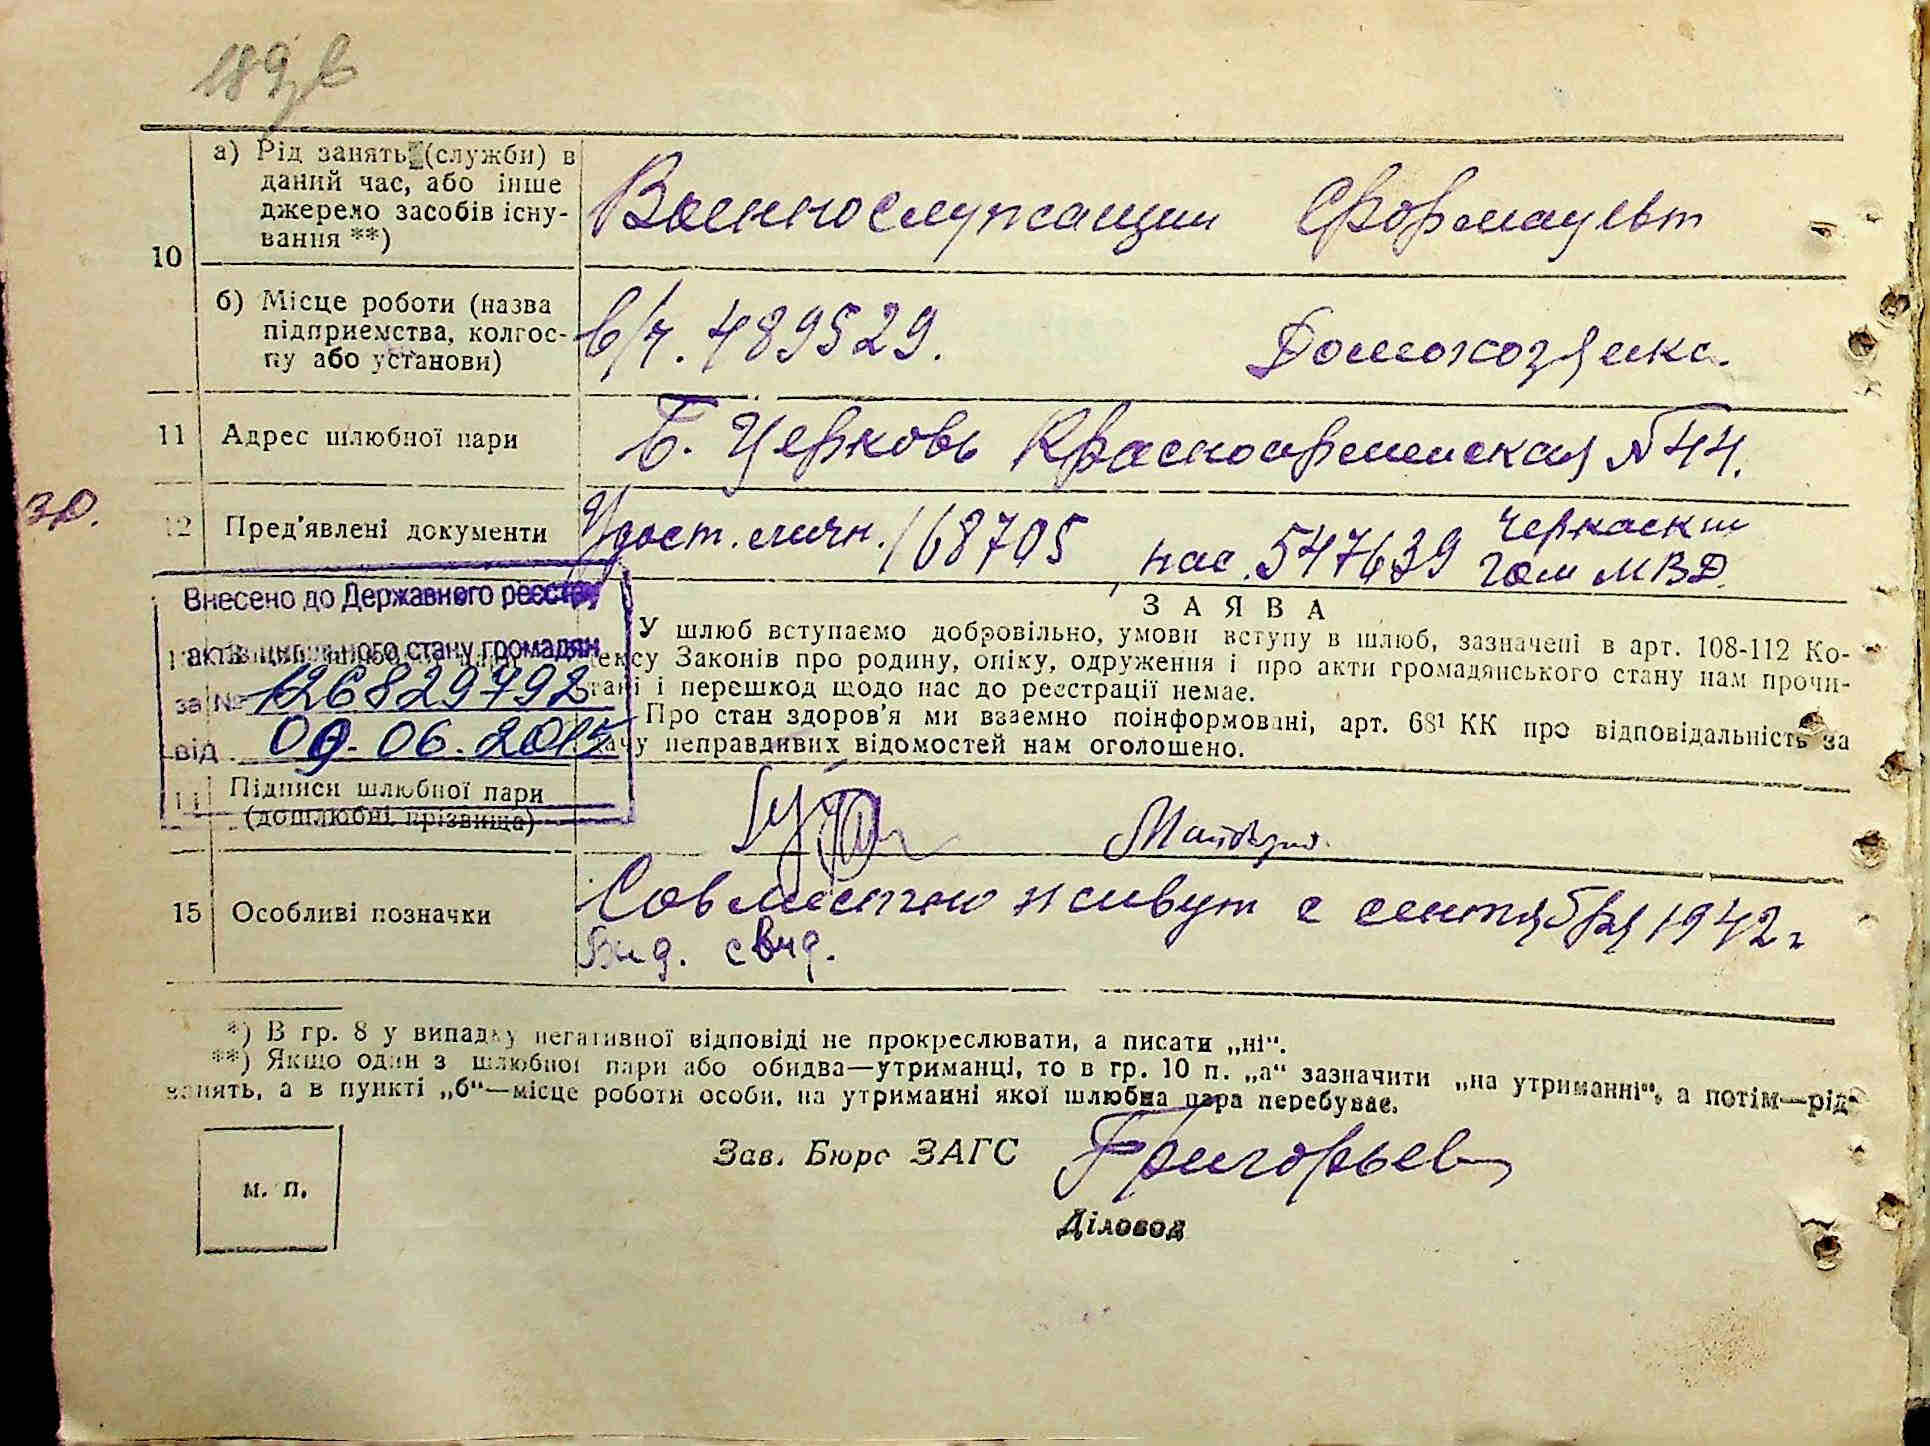 а) Рід занять (служби) в
даний час, або інше
джерело засобів існу-
вання **)
Военнослужащий
10
б) Місце роботи (назва
підприємства, колгос-
пу або установи)
в/ч. 489529.
Домохозяйка.
11 Адрес шлюбної пари
Б. Церковь Красноармейская №44.
12 Пред'явлені документи
Удост. личн. 168705
пас. 547639 Черкаским
гом МВД.
Внесено до Державного реєстру
актів цивільного стану громадян
за № 126829792
від 09.06.2015
ЗАЯВА
У шлюб вступаємо добровільно, умови вступу в шлюб, зазначені в арт. 108-112 Ко-
ексу Законів про родину, опіку, одруження і про акти громадянського стану нам прочи-
тані і перешкод щодо нас до реєстрації немає.
Про стан здоров'я ми взаємно поінформовані, арт. 68¹ КК про відповідальність за
дачу неправдивих відомостей нам оголошено.
14 Підписи шлюбної пари
(дошлюбні прізвища)
15 Особливі позначки
Совместно живут с сентября 1942 г
Выд. свид.
*) В гр. 8 у випадку негативної відповіді не прокреслювати, а писати „ні“.
**) Якщо один з шлюбної пари або обидва—утриманці, то в гр. 10 п. „а“ зазначити „на утриманні“, а потім—рід
занять, а в пункті „б“—місце роботи особи, на утриманні якої шлюбна пара перебуває.
Зав. Бюро ЗАГС Григорьев
м. п.
Діловод